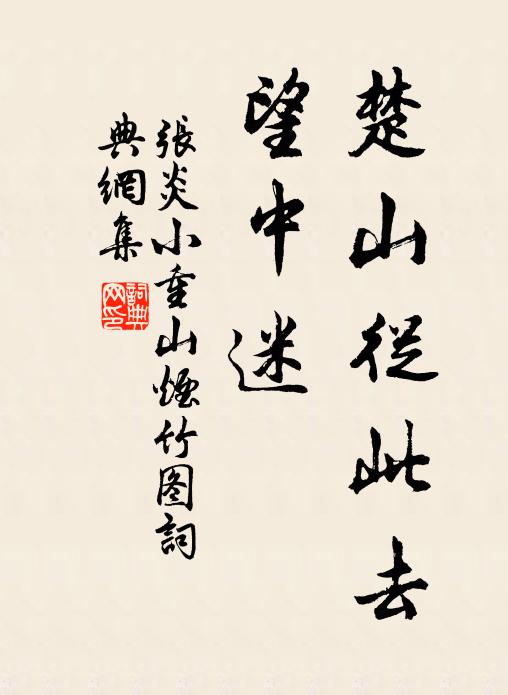 楚山從此去
望中迷
張炎小重山煙竹图詞
典網集
詞典网印